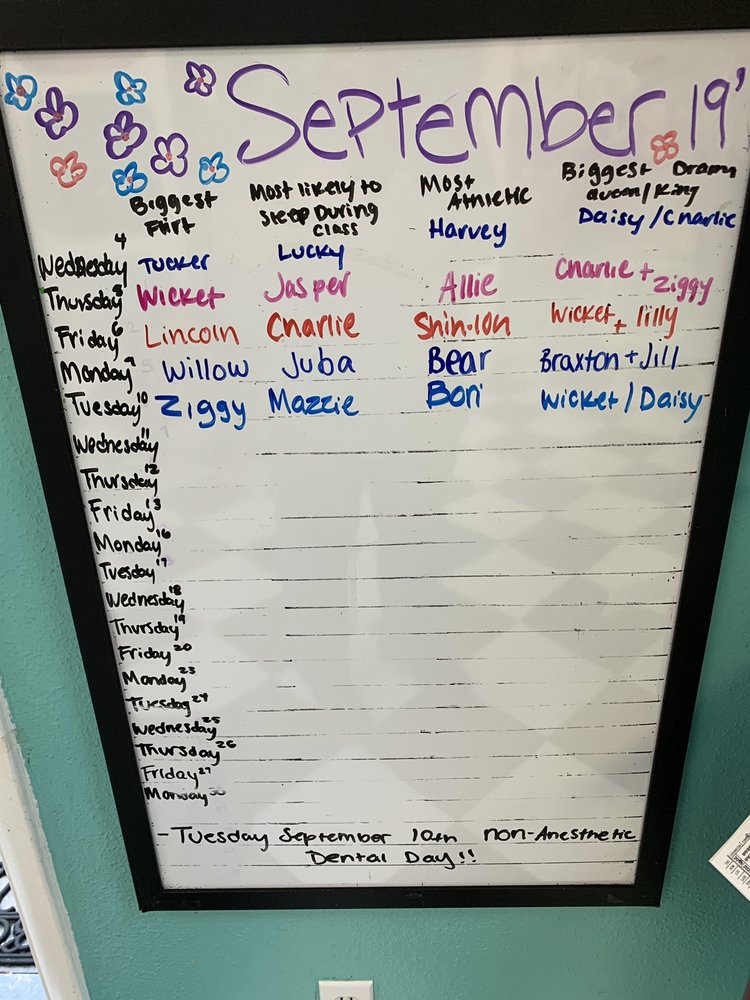 September 19'
Biggest Flirt
Most likely to Sleep During class
Most Athletic
Biggest Drama queen/King
Wednesday 4 Tucker Lucky Harvey Daisy/Charlie
Thursday 5 Wicket Jasper Allie Charlie + Ziggy
Friday 6 Lincoln Charlie Shin-lon Wicket + lilly
Monday 9 Willow Juba Bear Braxton + Jill
Tuesday 10 Ziggy Mazzie Bori Wicket/Daisy
Wednesday 11
Thursday 12
Friday 13
Monday 16
Tuesday 17
Wednesday 18
Thursday 19
Friday 20
Monday 23
Tuesday 24
Wednesday 25
Thursday 26
Friday 27
Monday 30
- Tuesday September 10th non-Anesthetic
Dental Day!!